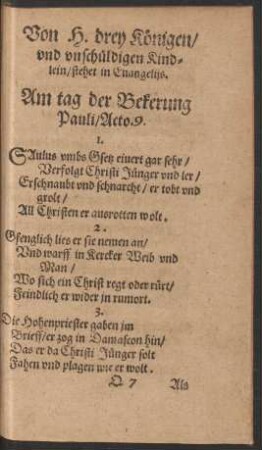 Von H. drey Königen/
vnd vnschüldigen Kind-
lein/stehet in Euangelijs.
Am tag der Bekerung
Pauli/Acto.9.
1.
SAulus vmbs Gsetz eivert gar sehr/
Verfolgt Christi Jünger vnd ler/
Erschnaubt vnd schnarcht/er tobt vnd
grolt/
All Christen er ausrotten wolt.
2.
Gfenglich lies er sie nemen an/
Vnd warff in Kercker Weib vnd
Man/
Wo sich ein Christ regt oder rürt/
Feindlich er wider in rumort.
3.
Die Hohenpriester gaben jm
Brieff/er zog in Damascon hin/
Das er da Christi Jünger solt
Fahen vnd plagen wie er wolt.
Q 7 Als